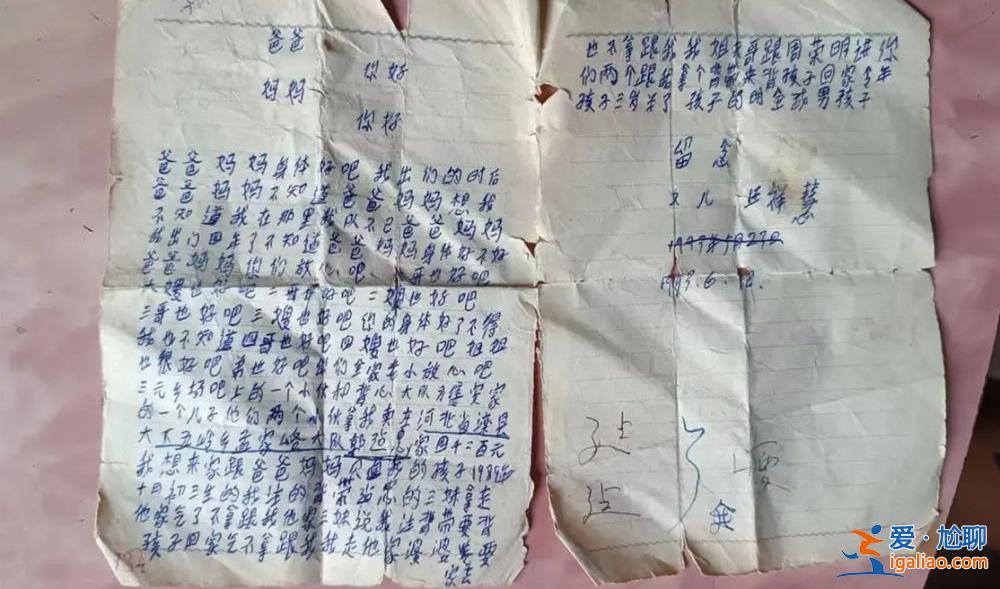 爸爸
你好
妈妈
你好
爸爸妈妈身体好吧我出们的时后
爸爸妈妈不知道爸爸妈妈想我
不知道我在那里我队不己爸爸妈妈
我出门四年了不知道爸爸妈妈身体好不好
爸爸妈妈你们放心吧大哥也好吧
大嫂也好吧二哥也好吧二嫂也好吧
三哥也好吧三嫂也好吧你的身体好了不得
我也不知道四哥也好吧四嫂也好吧姐姐
也很好吧弟也好吧你们全家老小放心吧
三元乡场吧上的一个小伙和营心大队方堡宋家
的一个儿子他们两个小伙拿我卖在河北省滦县
大下五岭乡孟家峪大队韩延忠家四十二百元
我想来家跟爸爸妈妈见面我的孩子1989年
十月初三生的我法的背带当家的三妹拿走
他家气了不拿跟我他家三妹说我法背带要背
孩子回家气不拿跟我我走他家婆婆先要
家去
也不拿跟我我姐夫哥跟周荣明进你
们两个跟我拿个背带来背孩子回家今年
孩子三岁半了孩子的明全球男孩子
留念
女儿 丘祥慧
1993.6.12.